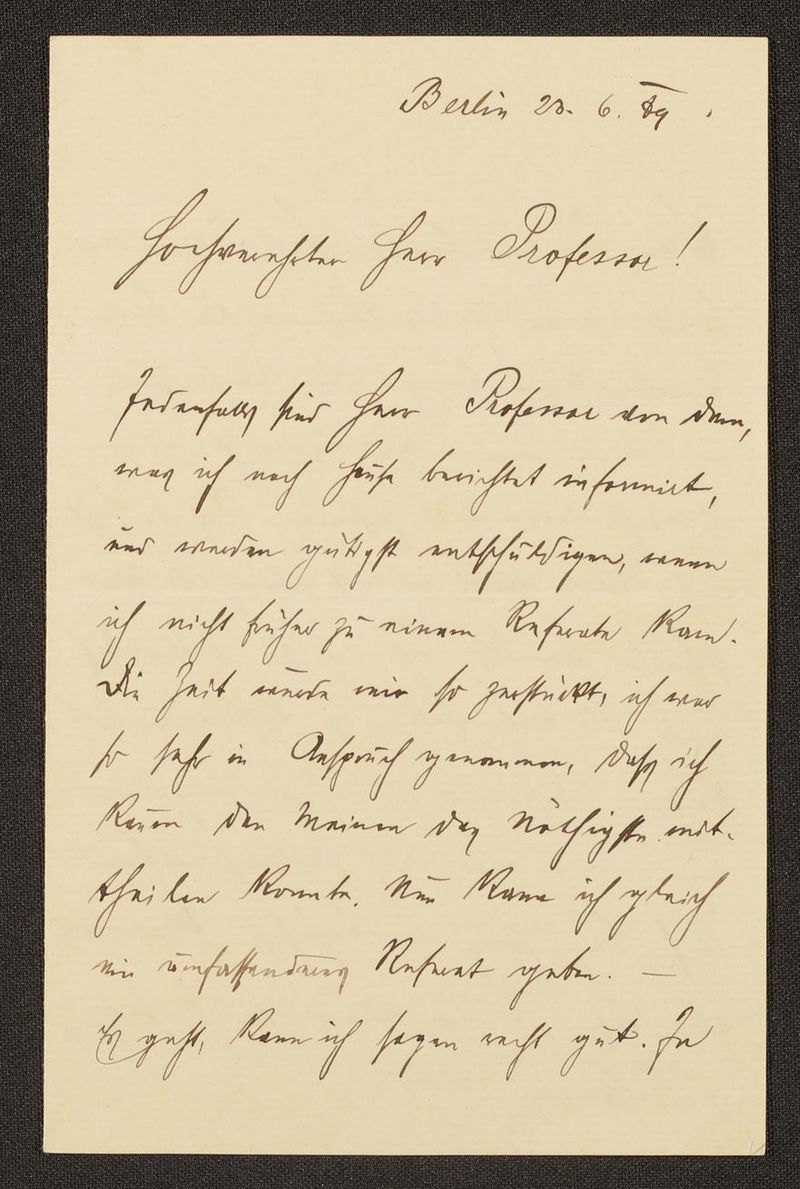 Berlin 23. 6. 89.
Hochverehrter Herr Professor!
Jedenfalls sind Herr Professor von dem,
was ich nach Hause berichtet informirt,
und werden gütigst entschuldigen, wenn
ich nicht früher zu einem Referate kam.
Die Zeit wurde mir so zerstückt, ich war
so sehr in Anspruch genommen, daß ich
kaum den Meinen das Nöthigste mit-
theilen konnte. Nun kann ich gleich
ein umfassenderes Referat geben. —
Es geht, kann ich sagen recht gut. In